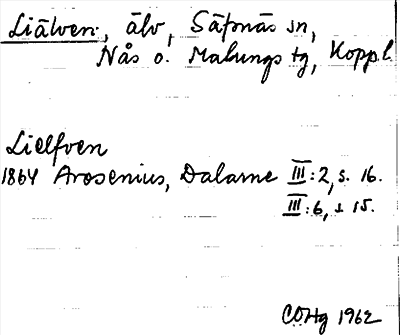 Liälven, älv, Säfsnäs sn,
Nås o. Malungs tg, Koppl.
Lielfven
1864 Arosenius, Dalarne III:2, s. 16.
III:6, s 15.
COHg 1962